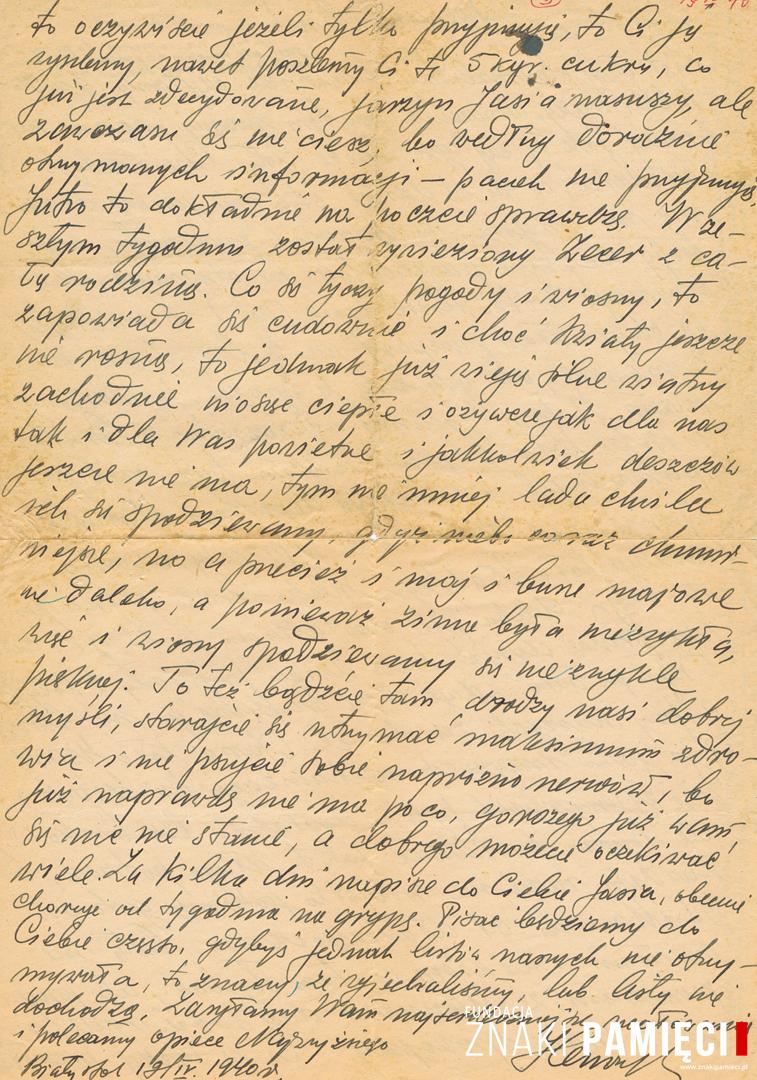 to oczywiście jeżeli tylko przyjmują, to Ci ją
wyślemy, nawet poszlemy Ci te 5 kgr. cukru, co
już jest zdecydowane, jarzyn Jasia nasuszy, ale
zawczasu się nie ciesz, bo według doraźnie
otrzymanych informacji – paczek nie przyjmują.
Jutro to dokładnie na poczcie sprawdzę. W ze-
szłym tygodniu został wywieziony Zecer z ca-
łą rodziną. Co się tyczy pogody i wiosny, to
zapowiada się cudownie i choć kwiaty jeszcze
nie rosną, to jednak już wieją silne wiatry
zachodnie niosąc ciepłe i ożywcze jak dla nas
tak i dla Was powietrze i jakkolwiek deszczów
jeszcze nie ma, tym nie mniej lada chwila
ich się spodziewamy, gdyż niebo coraz chmur-
niejsze, no a przecież i maj i burze majowe
nie daleko, a ponieważ zima była niezwykła,
więc i wiosny spodziewamy się niezwykle
pięknej. To też bądźcie tam drodzy nasi dobrej
myśli, starajcie się utrzymać maksimum zdro-
wia i nie psujcie sobie napróżno nerwów, bo
już naprawdę nie ma po co, gorszego już wam
się nic nie stanie, a dobrego możecie oczekiwać
wiele. Za kilka dni napisze do Ciebie Jasia, obecnie
choruje od tygodnia na grypę. Pisać będziemy do
Ciebie często, gdybyś jednak listów naszych nie otrzy-
mywała, to znaczy, że wyjechaliśmy, lub listy nie
dochodzą. Zasyłamy Wam
i polecamy opiece Najwyższego
Białystok 19/IV. 1940 r.
FUNDACJA
ZNAKI PAMIĘCI
www.znakipamieci.pl